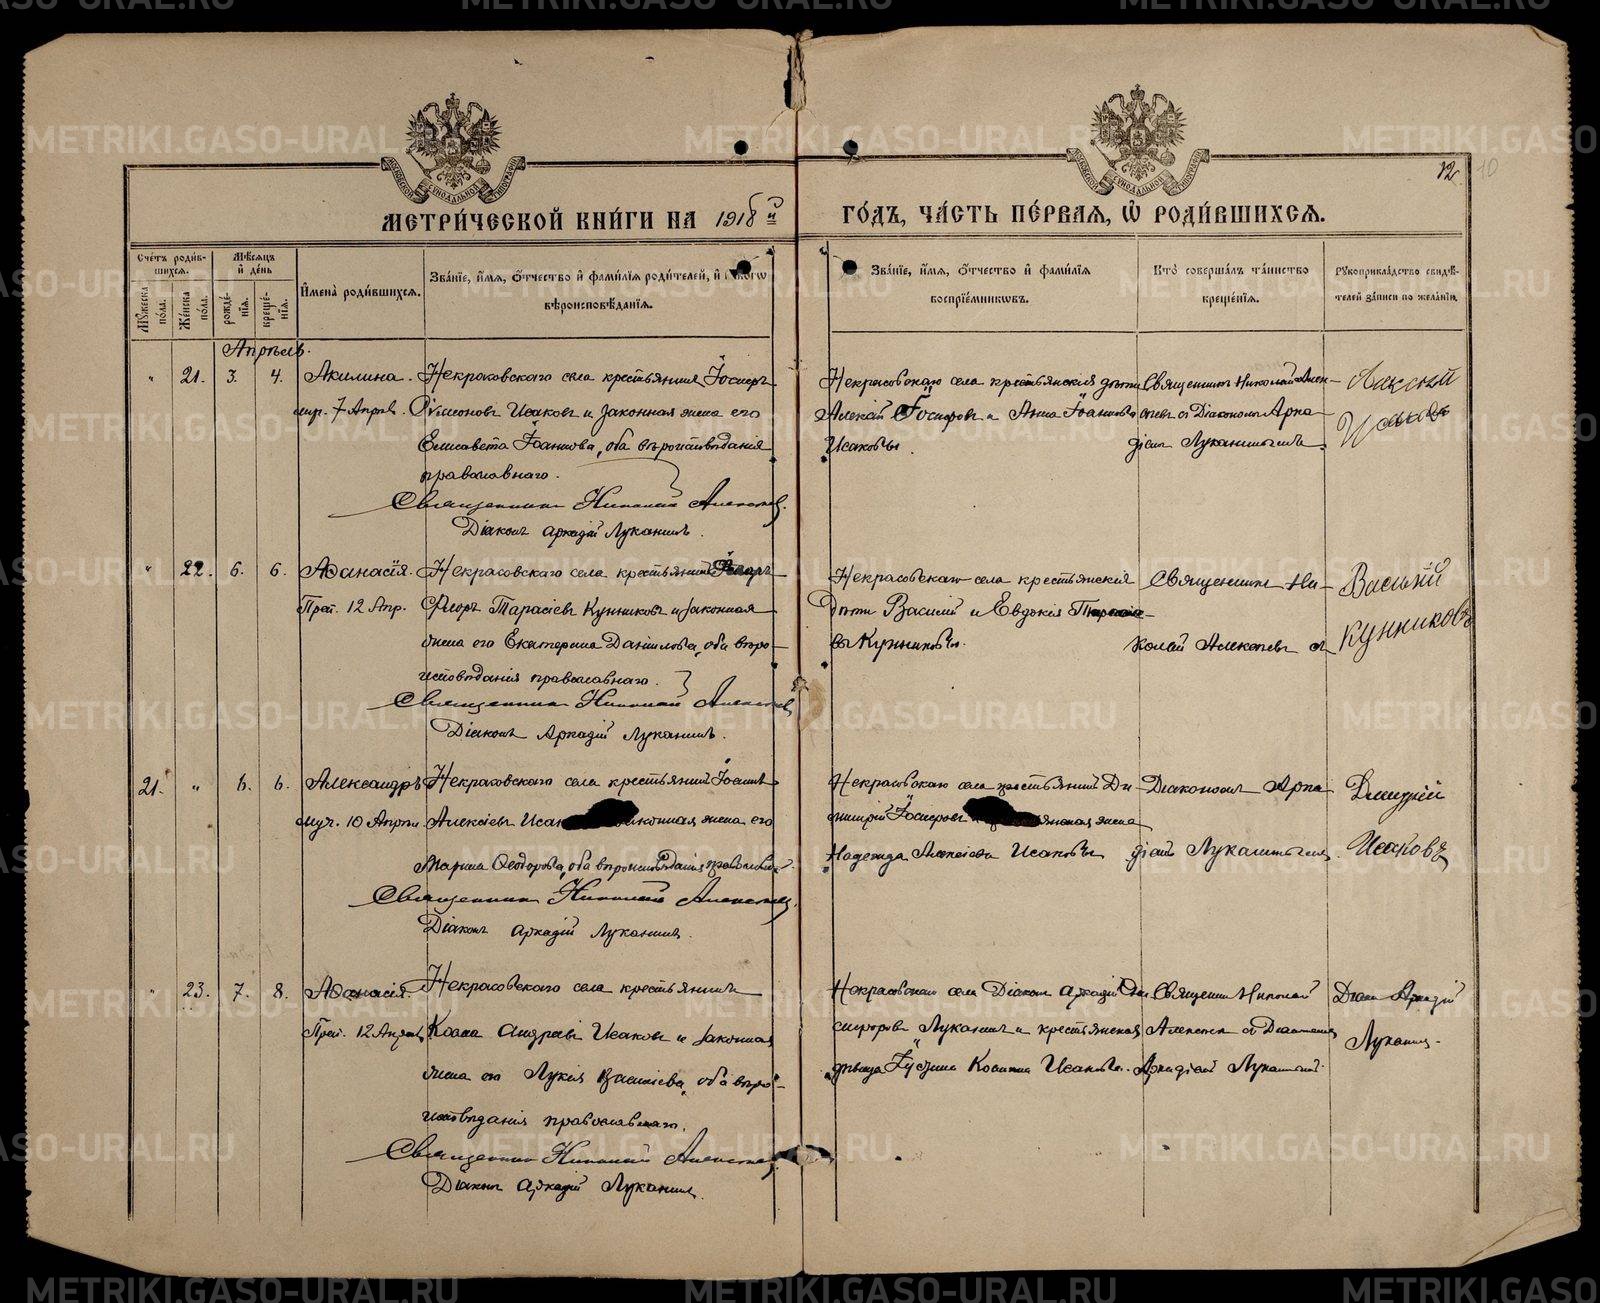 METRIKI.GASO-URAL.RU
12
10
МОСКОВСКОЙ СѴНОДАЛЬНОЙ ТИПОГРАФІИ
МЕТРИ́ЧЕСКОЙ КНИ́ГИ НА 1918 й ГО́ДЪ, ЧА́СТЬ ПЕ́РВАЯ, Ѡ҆ РОДИ́ВШИХСЯ.
Сче́тъ роди́вшихся.
Мꙋ́жеска по́ла.
Же́нска по́ла.
Мѣ́сяцъ и҆ де́нь
рожде́нїя.
креще́нїя.
И҆мена̀ роди́вшихся.
Зва́нїе, и҆́мя, ѻ҆́тчество и҆ фами́лїя роди́телей, и҆
вѣроисповѣ́данїя.
Зва́нїе, и҆́мя, ѻ҆́тчество и҆ фами́лїя
воспрїе́мниковъ.
Кто̀ соверша́лъ та́инство
креще́нїя.
Рꙋкоприкла́дство свидѣ́телей за́писи по жела́нїю.
Апрѣль.
" 21. 3. 4. Акилина.
мц. 7 Апрѣ.
Некрасовскаго села крестьянинъ Іосифъ
Симоновъ Исаковъ и законная жена его
Елисавета Іоаннова, оба вѣроисповѣданія
православнаго.
Священникъ Николай Алексѣевъ
Діаконъ Аркадій Луканинъ.
Некрасовскаго села крестьянскія дѣти
Алексій Іосифовъ и Анна Іоаннова
Исаковы.
Священникъ Николай Алексѣевъ съ Діакономъ Аркадіемъ Луканинымъ.
Алексѣй
Исаковъ
" 22. 6. 6. Аѳанасія.
Преп. 12 Апр.
Некрасовскаго села крестьянинъ
Флоръ Тарасіевъ Кунниковъ и законная
жена его Екатерина Даніилова, оба вѣроисповѣданія православнаго.
Священникъ Николай Алексѣевъ
Діаконъ Аркадій Луканинъ.
Некрасовскаго села крестьянскія
дѣти Василій и Евдокія
Кунниковы.
Священникъ Николай Алексѣевъ съ
Василій
Кунниковъ
21. " 6. 6. Александръ
муч. 10 Апрѣл.
Некрасовскаго села крестьянинъ Іосифъ
Алексіевъ законная жена его
Марина Ѳеодорова, оба вѣроисповѣданія православнаго.
Священникъ Николай Алексѣевъ.
Діаконъ Аркадій Луканинъ.
Некрасовскаго села крестьянинъ Димитрій Іосифовъ жена
Надежда Алексіева Исаковы
Діакономъ Аркадіемъ Луканинымъ.
Дмитрій
Исаковъ
" 23. 7. 8. Аѳанасія.
Преп. 12 Апрѣля
Некрасовскаго села крестьянинъ
Косма Андреевъ Исаковъ и законная
жена его Лукія Васильева, оба вѣроисповѣданія православнаго.
Священникъ Николай Алексѣевъ
Діаконъ Аркадій Луканинъ.
Некрасовскаго села Діаконъ Аркадій Луканинъ и крестьянская
дѣвица Іустина Космина Исакова.
Священникъ Николай
Алексѣевъ съ Діакономъ
Аркадіемъ Луканинымъ.
Діаконъ Аркадій
Луканинъ.